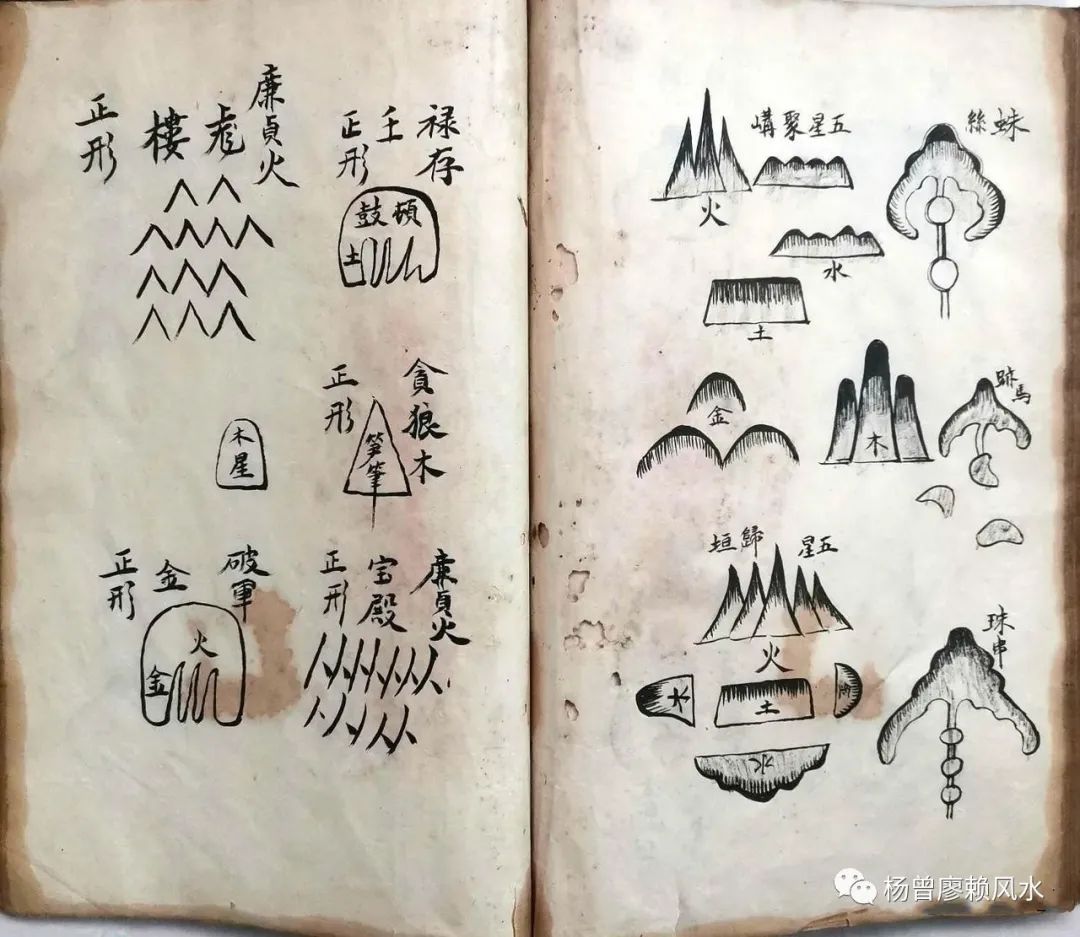 蛛絲
五星聚
火
水
土
金
木
馬跡
五星歸垣
火
木
土
金
水
珠串
禄存
正形
頓鼓
土
貪狼木
正形
筍筆
廉貞火
宝殿
正形
廉貞火
樓
正形
木星
破軍
金
正形
火
金
杨曾廖赖风水